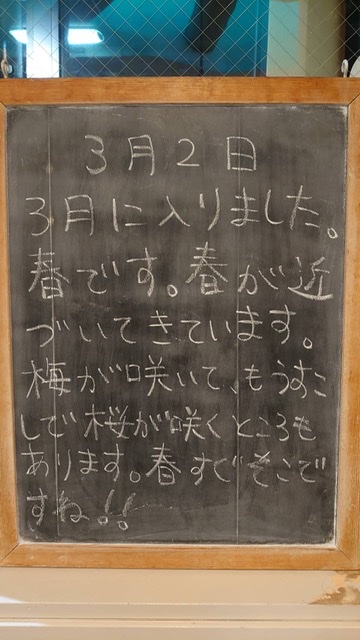 3月2日
3月に入りました。
春です。春が近
づいてきています。
梅が咲いて、もうすこ
しで桜が咲くところも
あります。春すぐそこで
すね!!